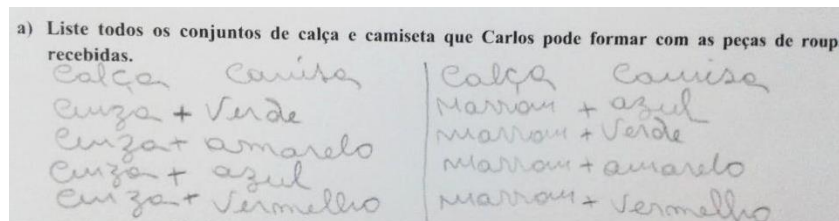 a) Liste todos os conjuntos de calça e camiseta que Carlos pode formar com as peças de roup
recebidas.
Calça Camisa
Cinza + Verde
Cinza + amarelo
Cinza + azul
Cinza + Vermelho
Calça Camisa
Marrom + azul
Marrom + Verde
Marrom + amarelo
Marrom + Vermelho